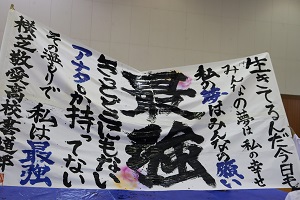 生きてるんだ今日も
みんなの夢は私の幸せ
私の夢はみんなの願い
最強
きっとどこにもない
アナタしか持ってない
その温もりで私は最強
桜之牧愛高校書道部